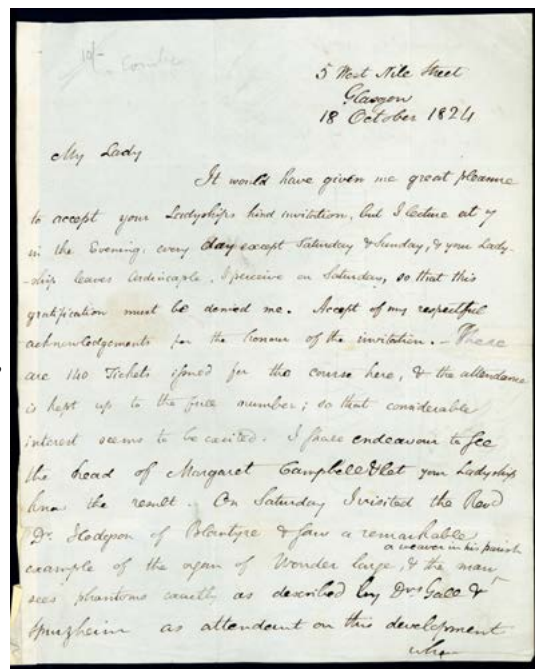 Combe
5 West Nile Street
Glasgow
18 October 1824
My Lady
It would have given me great pleasure
to accept your Ladyships kind invitation, but I lecture at 7
in the Evening, every day except Saturday & Sunday, & your Lady-
-ship leaves Ardincaple, I perceive on Saturday, so that this
gratification must be denied me. Accept of my respectful
acknowledgements for the honour of the invitation. – There
are 140 Tickets issued for the course here, & the attendance
is kept up to the full number; so that considerable
interest seems to be excited. I shall endeavour to see
the head of Margaret Campbell & let your Ladyship
know the result. On Saturday I visited the Revd
Dr. Hodgson of Blantyre & saw a remarkable
a weaver in his parish
example of the organ of Wonder large, & the man
sees phantoms exactly as described by Drs Gall &
Spurzheim as attendant on this development
when